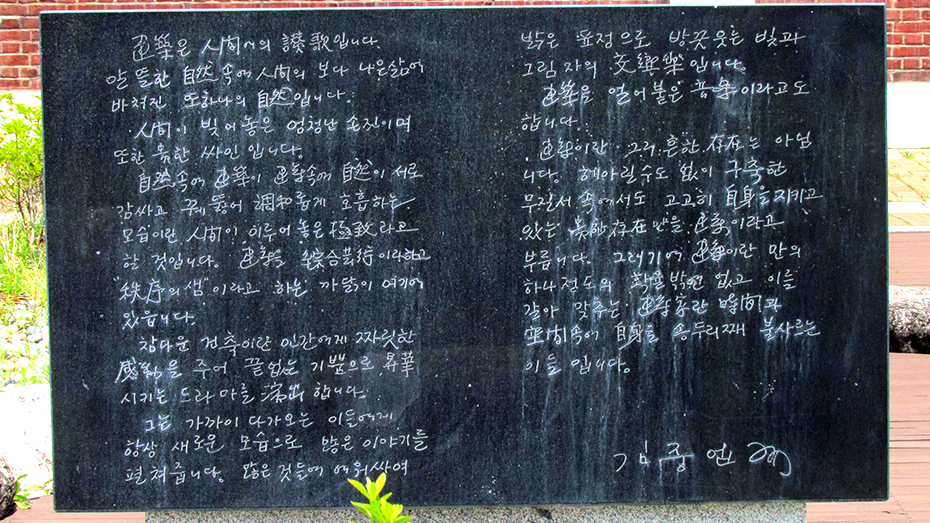 建築은 人間에의 讃歌입니다.
알뜰한 自然 속에 人間의 보다 나은 삶에
바쳐진 또하나의 自然입니다.
人間이 빚어 놓은 엄청난 손진이며
또한 욕한 싸인 입니다.
自然속에 建築이 建築속에 自然이 서로
감싸고 꿰뚫어 調和롭게 호흡하는
모습이란 人間이 이루어 놓은 極致라고
할 것입니다. 建築을 綜合藝術이라하고
"秩序의 샘"이라고 하는 까닭이 여기에
있읍니다.
참다운 건축이란 인간에게 짜릿한
感動을 주어 끝없는 기쁨으로 昇華
시키는 드라마를 演出합니다.
그는 가까이 다가오는 이들에게
항상 새로운 모습으로 많은 이야기를
펼쳐줍니다. 많은것들에 에워싸여
밝은 표정으로 방끗웃는 빛과
그림자의 交響樂입니다.
建築을 얼어붙은 音樂이라고도
합니다.
建築이란 그리 흔한 存在는 아닙
니다. 헤아릴수도 없이 구축한
무질서 속에서도 고고히 自身을 지키고
있는 存在만을 建築이라고
부릅니다. 그러기에 建築이란 만의
하나 정도의 확율밖엔 없고 이들
갈아 맞추는 建築家란 時間과
空間속에 自身을 송두리째 불사르는
이들 입니다.
김중업